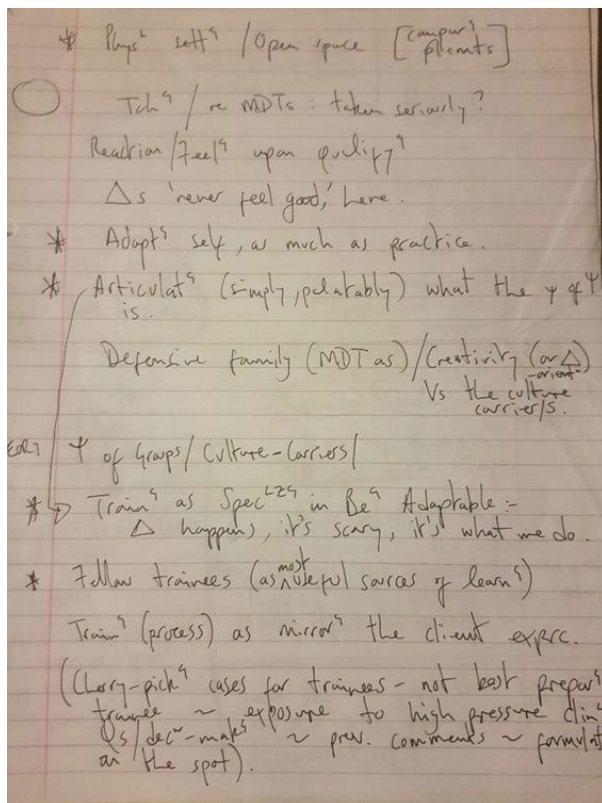 * Phys^l sett^g / Open space [campus pilemts]
Tch^g / re MDTs : taken seriously?
Reaction / Feel^g upon qualify^g
Δs 'never feel good,' here.
* Adapt^g self, as much as practice.
* Articulat^g (simply, palatably) what the ψ of Ψ
is.
Defensive family (MDT as) / Creativity (or Δ
-orient^n)
Vs the culture
carrier/s.
Ψ of Groups / Culture-Carriers /
* Train^g as Spec^lzg in Be^g Adaptable :-
Δ happens, it's scary, it's what we do.
* Fellow trainees (as most useful sources of learn^g)
Train^g (process) as mirror^g the client exprc.
(Cherry-pick^g cases for trainees - not best prepar^g
trainee ~ exposure to high pressure clin^l
Qs / dec^n-mak^g ~ prev. comments ~ formulat^g
on the spot).